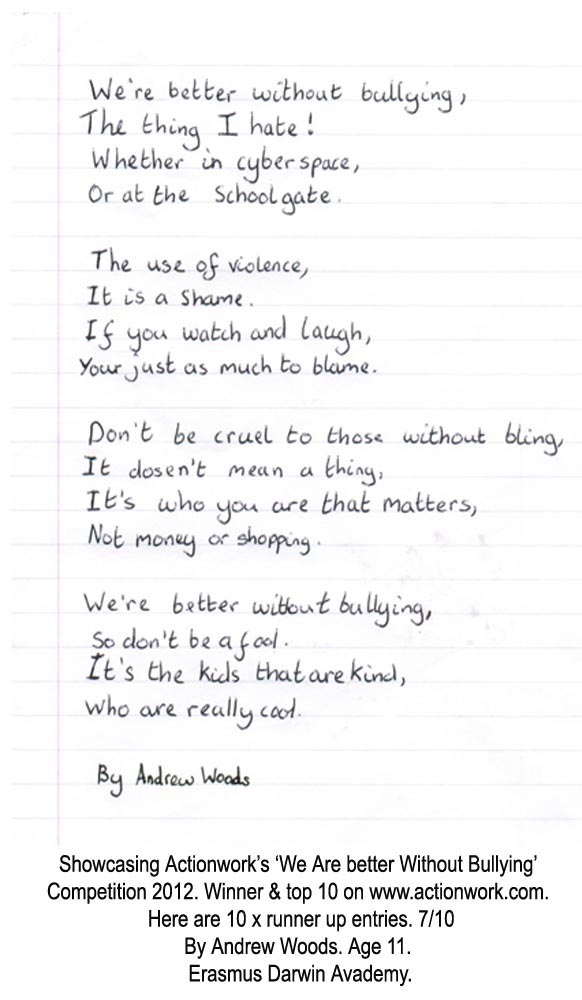 We're better without bullying,
The thing I hate!
Whether in cyberspace,
Or at the School gate.
The use of violence,
It is a shame.
If you watch and laugh,
Your just as much to blame.
Don't be cruel to those without bling,
It dosen't mean a thing,
It's who you are that matters,
Not money or shopping.
We're better without bullying,
So don't be a fool.
It's the kids that are kind,
Who are really cool.
By Andrew Woods
Showcasing Actionwork's 'We Are better Without Bullying'
Competition 2012. Winner & top 10 on www.actionwork.com.
Here are 10 x runner up entries. 7/10
By Andrew Woods. Age 11.
Erasmus Darwin Avademy.